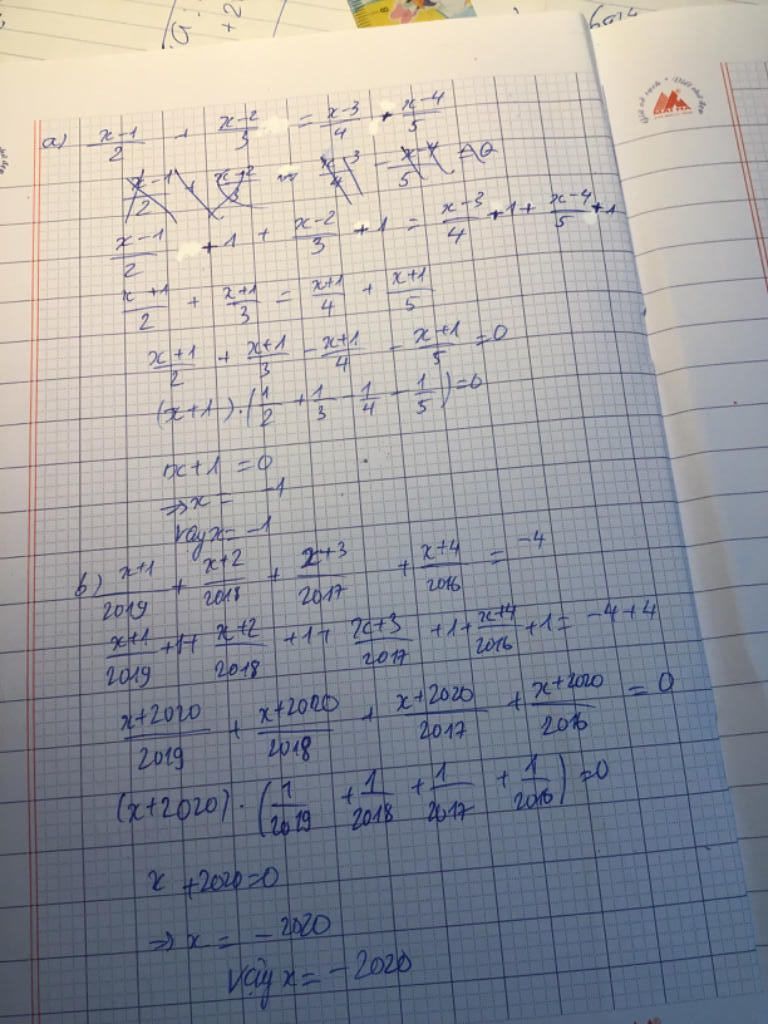 a) (x-1)/2 + (x-2)/3 = (x-3)/4 + (x-4)/5
(x-1)/2 + 1 + (x-2)/3 + 1 = (x-3)/4 + 1 + (x-4)/5 + 1
(x+1)/2 + (x+1)/3 = (x+1)/4 + (x+1)/5
(x+1)/2 + (x+1)/3 - (x+1)/4 - (x+1)/5 = 0
(x+1).(1/2 + 1/3 - 1/4 - 1/5) = 0
x+1 = 0
=> x = -1
Vậy x = -1
b) (x+1)/2019 + (x+2)/2018 + (x+3)/2017 + (x+4)/2016 = -4
(x+1)/2019 + 1 + (x+2)/2018 + 1 + (x+3)/2017 + 1 + (x+4)/2016 + 1 = -4+4
(x+2020)/2019 + (x+2020)/2018 + (x+2020)/2017 + (x+2020)/2016 = 0
(x+2020).(1/2019 + 1/2018 + 1/2017 + 1/2016) = 0
x+2020 = 0
=> x = -2020
Vậy x = -2020